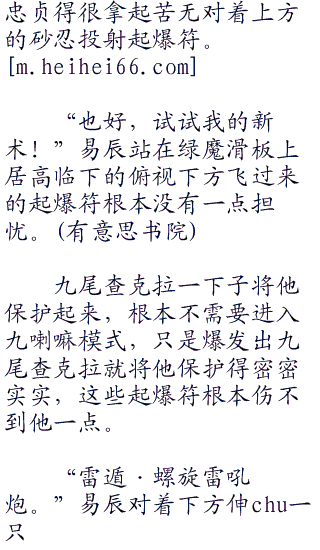 忠贞得很拿起苦无对着上方
的砂忍投射起爆符。
[m.heihei66.com]
“也好，试试我的新
术！”易辰站在绿魔滑板上
居高临下的俯视下方飞过来
的起爆符根本没有一点担
忧。(有意思书院)
九尾查克拉一下子将他
保护起来，根本不需要进入
九喇嘛模式，只是爆发出九
尾查克拉就将他保护得密密
实实，这些起爆符根本伤不
到他一点。
“雷遁·螺旋雷吼
炮。”易辰对着下方伸chu一
只